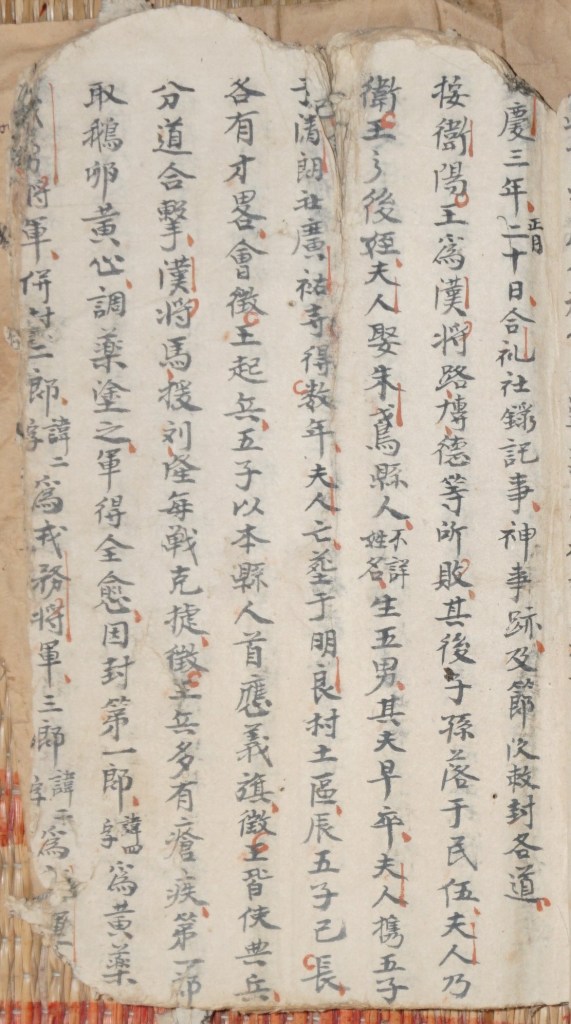 慶三年正月二十日合礼社錄記事神事跡及節次敕封各道
按衛陽王爲漢將路博德等所敗其後子孫落于民伍夫人乃
衛王之後姪夫人娶朱鳶縣人不詳姓名生五男其夫早卒夫人携五子
清朗社廣祐寺得数年夫人亡塟于明良村土區辰五子已長
各有才畧會徵王起兵五子以本縣人首應義旗徵王皆使典兵
分道合擊漢將馬援刘隆每戰克捷徵王兵多有瘡疾第一郎
取鵝卵黃心調藥塗之軍得全愈因封第一郎諱四字爲黃藥
將軍併封二郎諱二字爲戎務將軍三郎諱二字爲